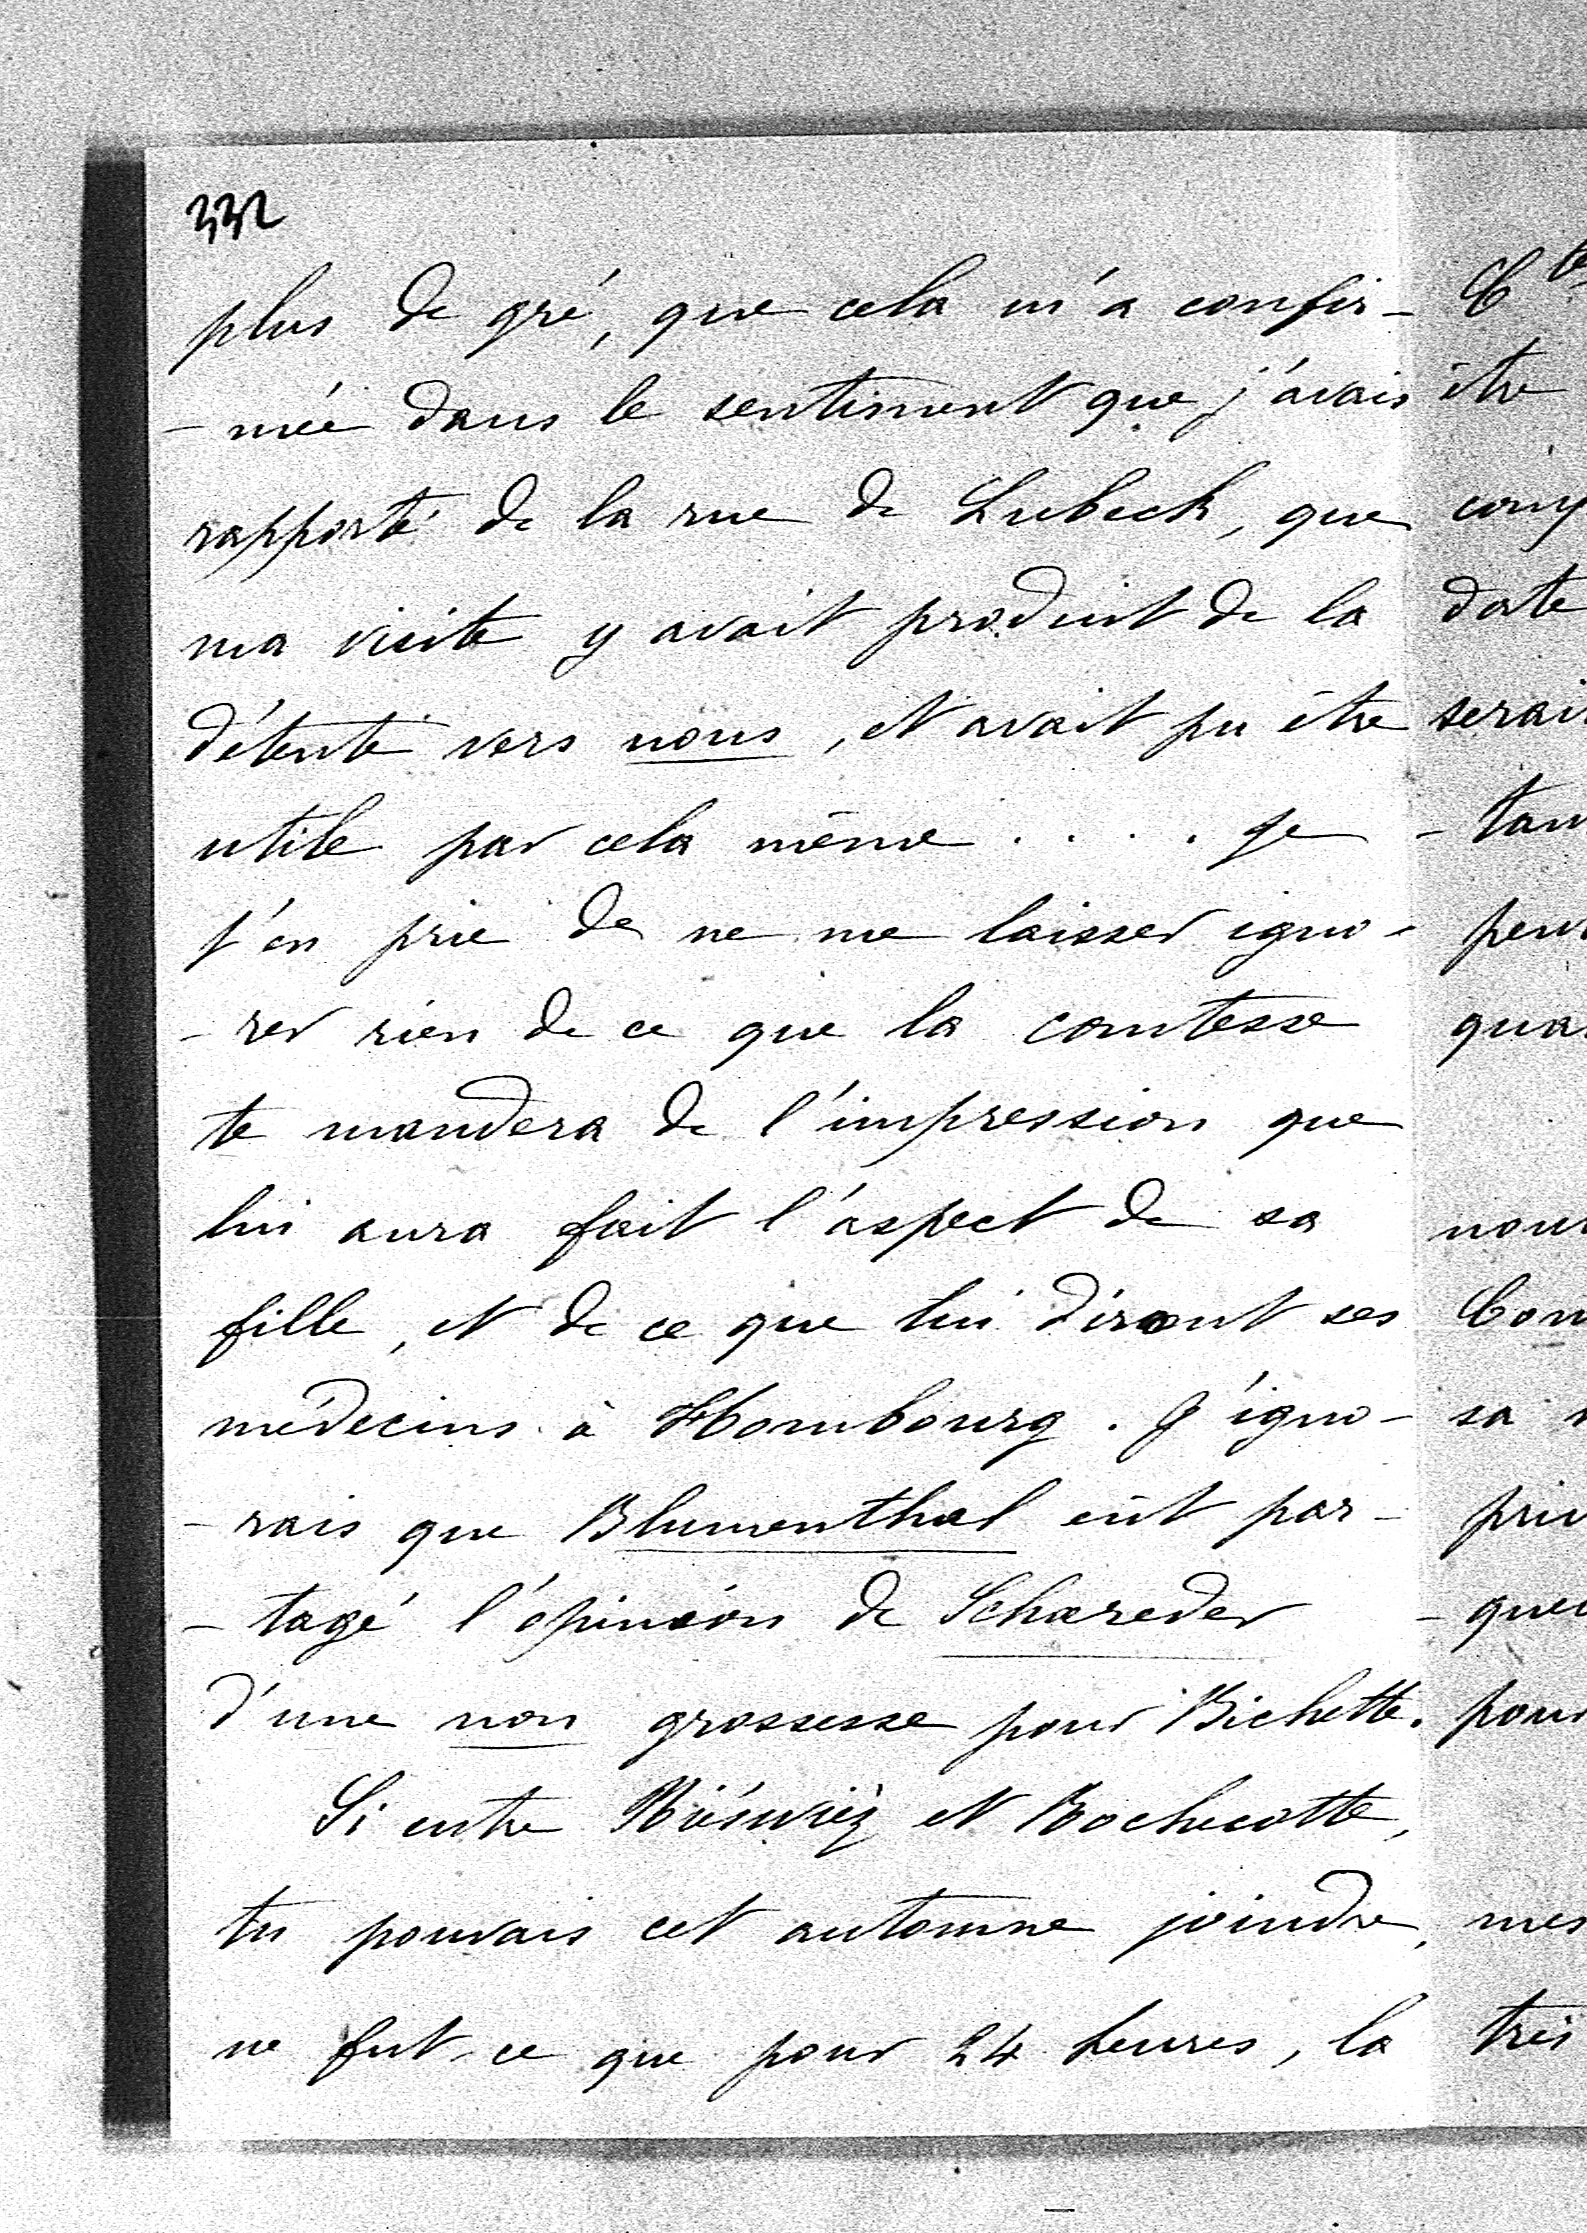 332
plus de gré, que cela m'a confir-
-mée dans le sentiment que j'avais
rapporté de la rue de Lubeck, que
ma visite y avait produit de la
détente vers nous, et avait pu être
utile par cela même . . . . Je
t'en prie de ne me laisser igno-
-rer rien de ce que la comtesse
te mandera de l'impression que
lui aura fait l'aspect de sa
fille, et de ce que lui diront ses
médecins à Hombourg. J'igno-
-rais que Blumenthal eût par-
-tagé l'opinion de Schareder
d'une non grossesse pour Bichette.
Si entre et Rochecotte,
tu pouvais cet automne joindre,
ne fut-ce que pour 24 heures, la
Cte
être
date
serai
-tan
qua
sa
pour
mes
très